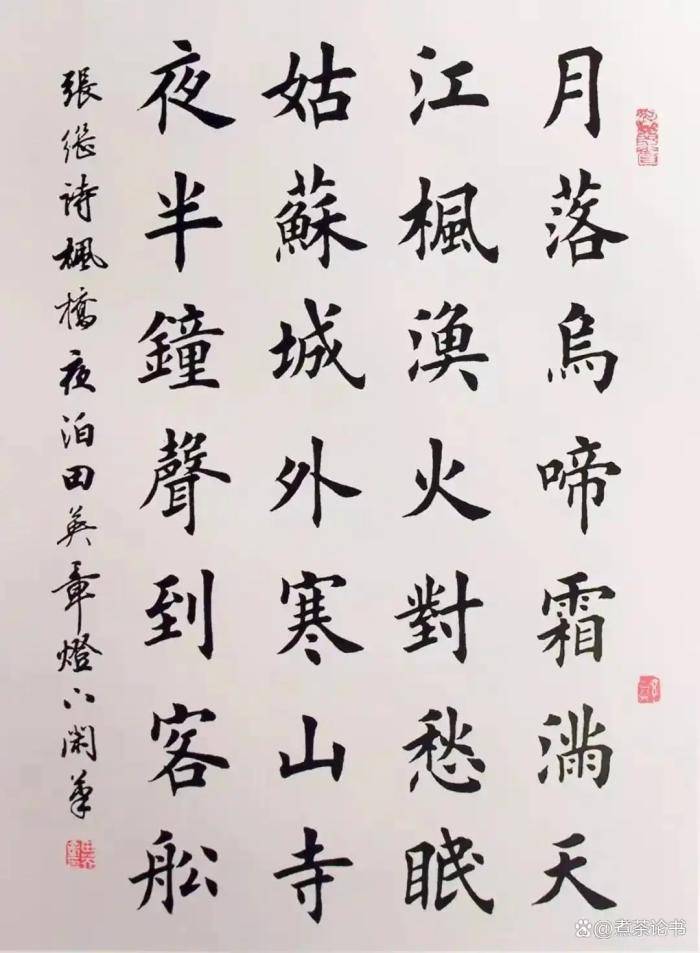 月落烏啼霜滿天
江楓漁火對愁眠
姑蘇城外寒山寺
夜半鐘聲到客船
張繼詩楓橋夜泊田英章燈下閑筆
煮茶论书